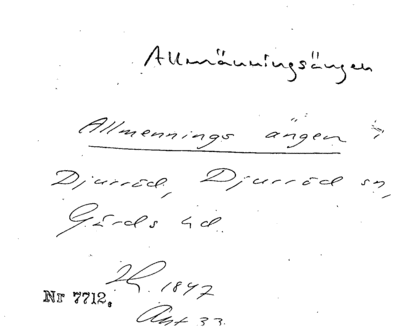 Allmänningsängen
Allmennings ängen i
Djurröd, Djurröd sn,
Gärds hd.
1847
Nr 7712.
Akt 33